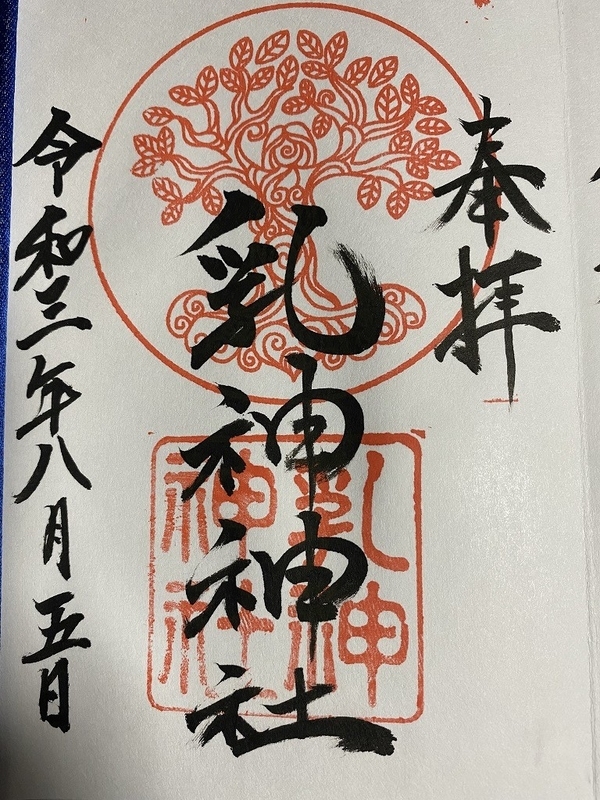 奉拝
乳神神社
乳神
神社
令和三年八月五日